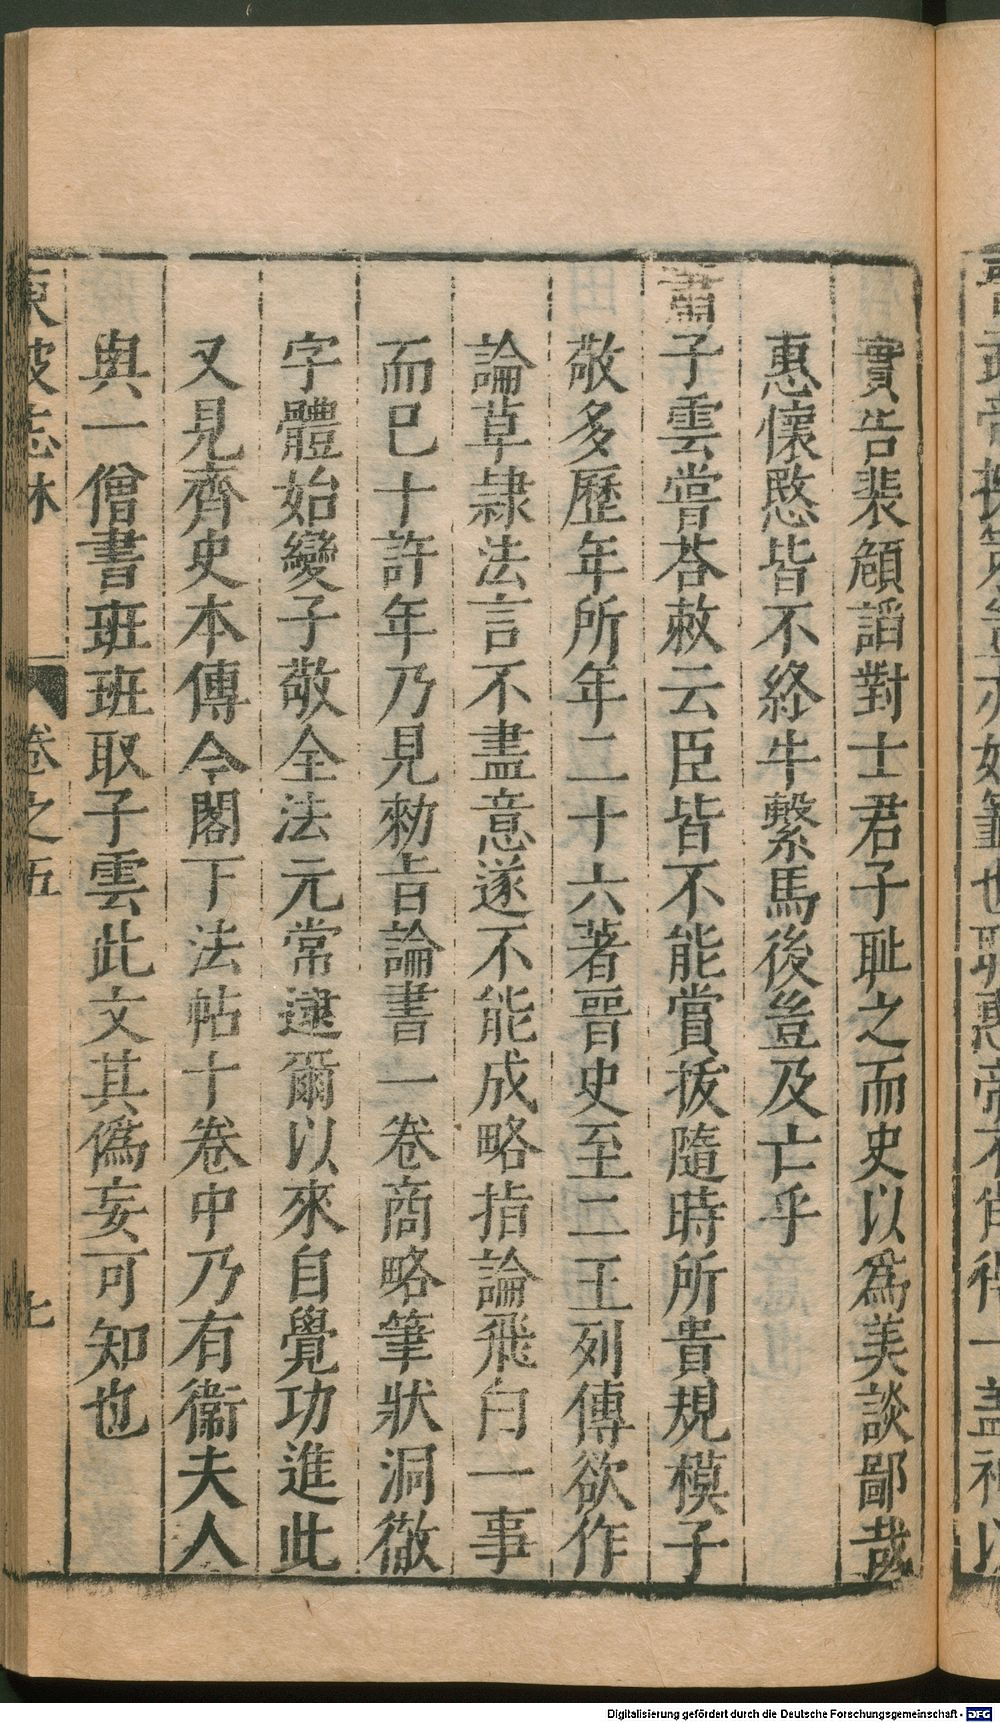 實告裴頠謟對士君子耻之而史以爲美談鄙哉
惠懷愍皆不終牛繫馬後豈及亡乎
蕭子雲嘗荅敕云臣昔不能賞拔隨時所貴規模子
敬多歷年所年二十六著晉史至二王列傳欲作
論草隸法言不盡意遂不能成略指論飛白一事
而巳十許年乃見勑旨論書一卷商略筆狀洞徹
字體始變子敬全法元常逮爾以來自覺功進此
又見齊史本傳今閣下法帖十卷中乃有衞夫人
與一僧書班班取子雲此文其僞妄可知也
東坡志林 卷之五 七
Digitalisierung gefördert durch die Deutsche Forschungsgemeinschaft - DFG